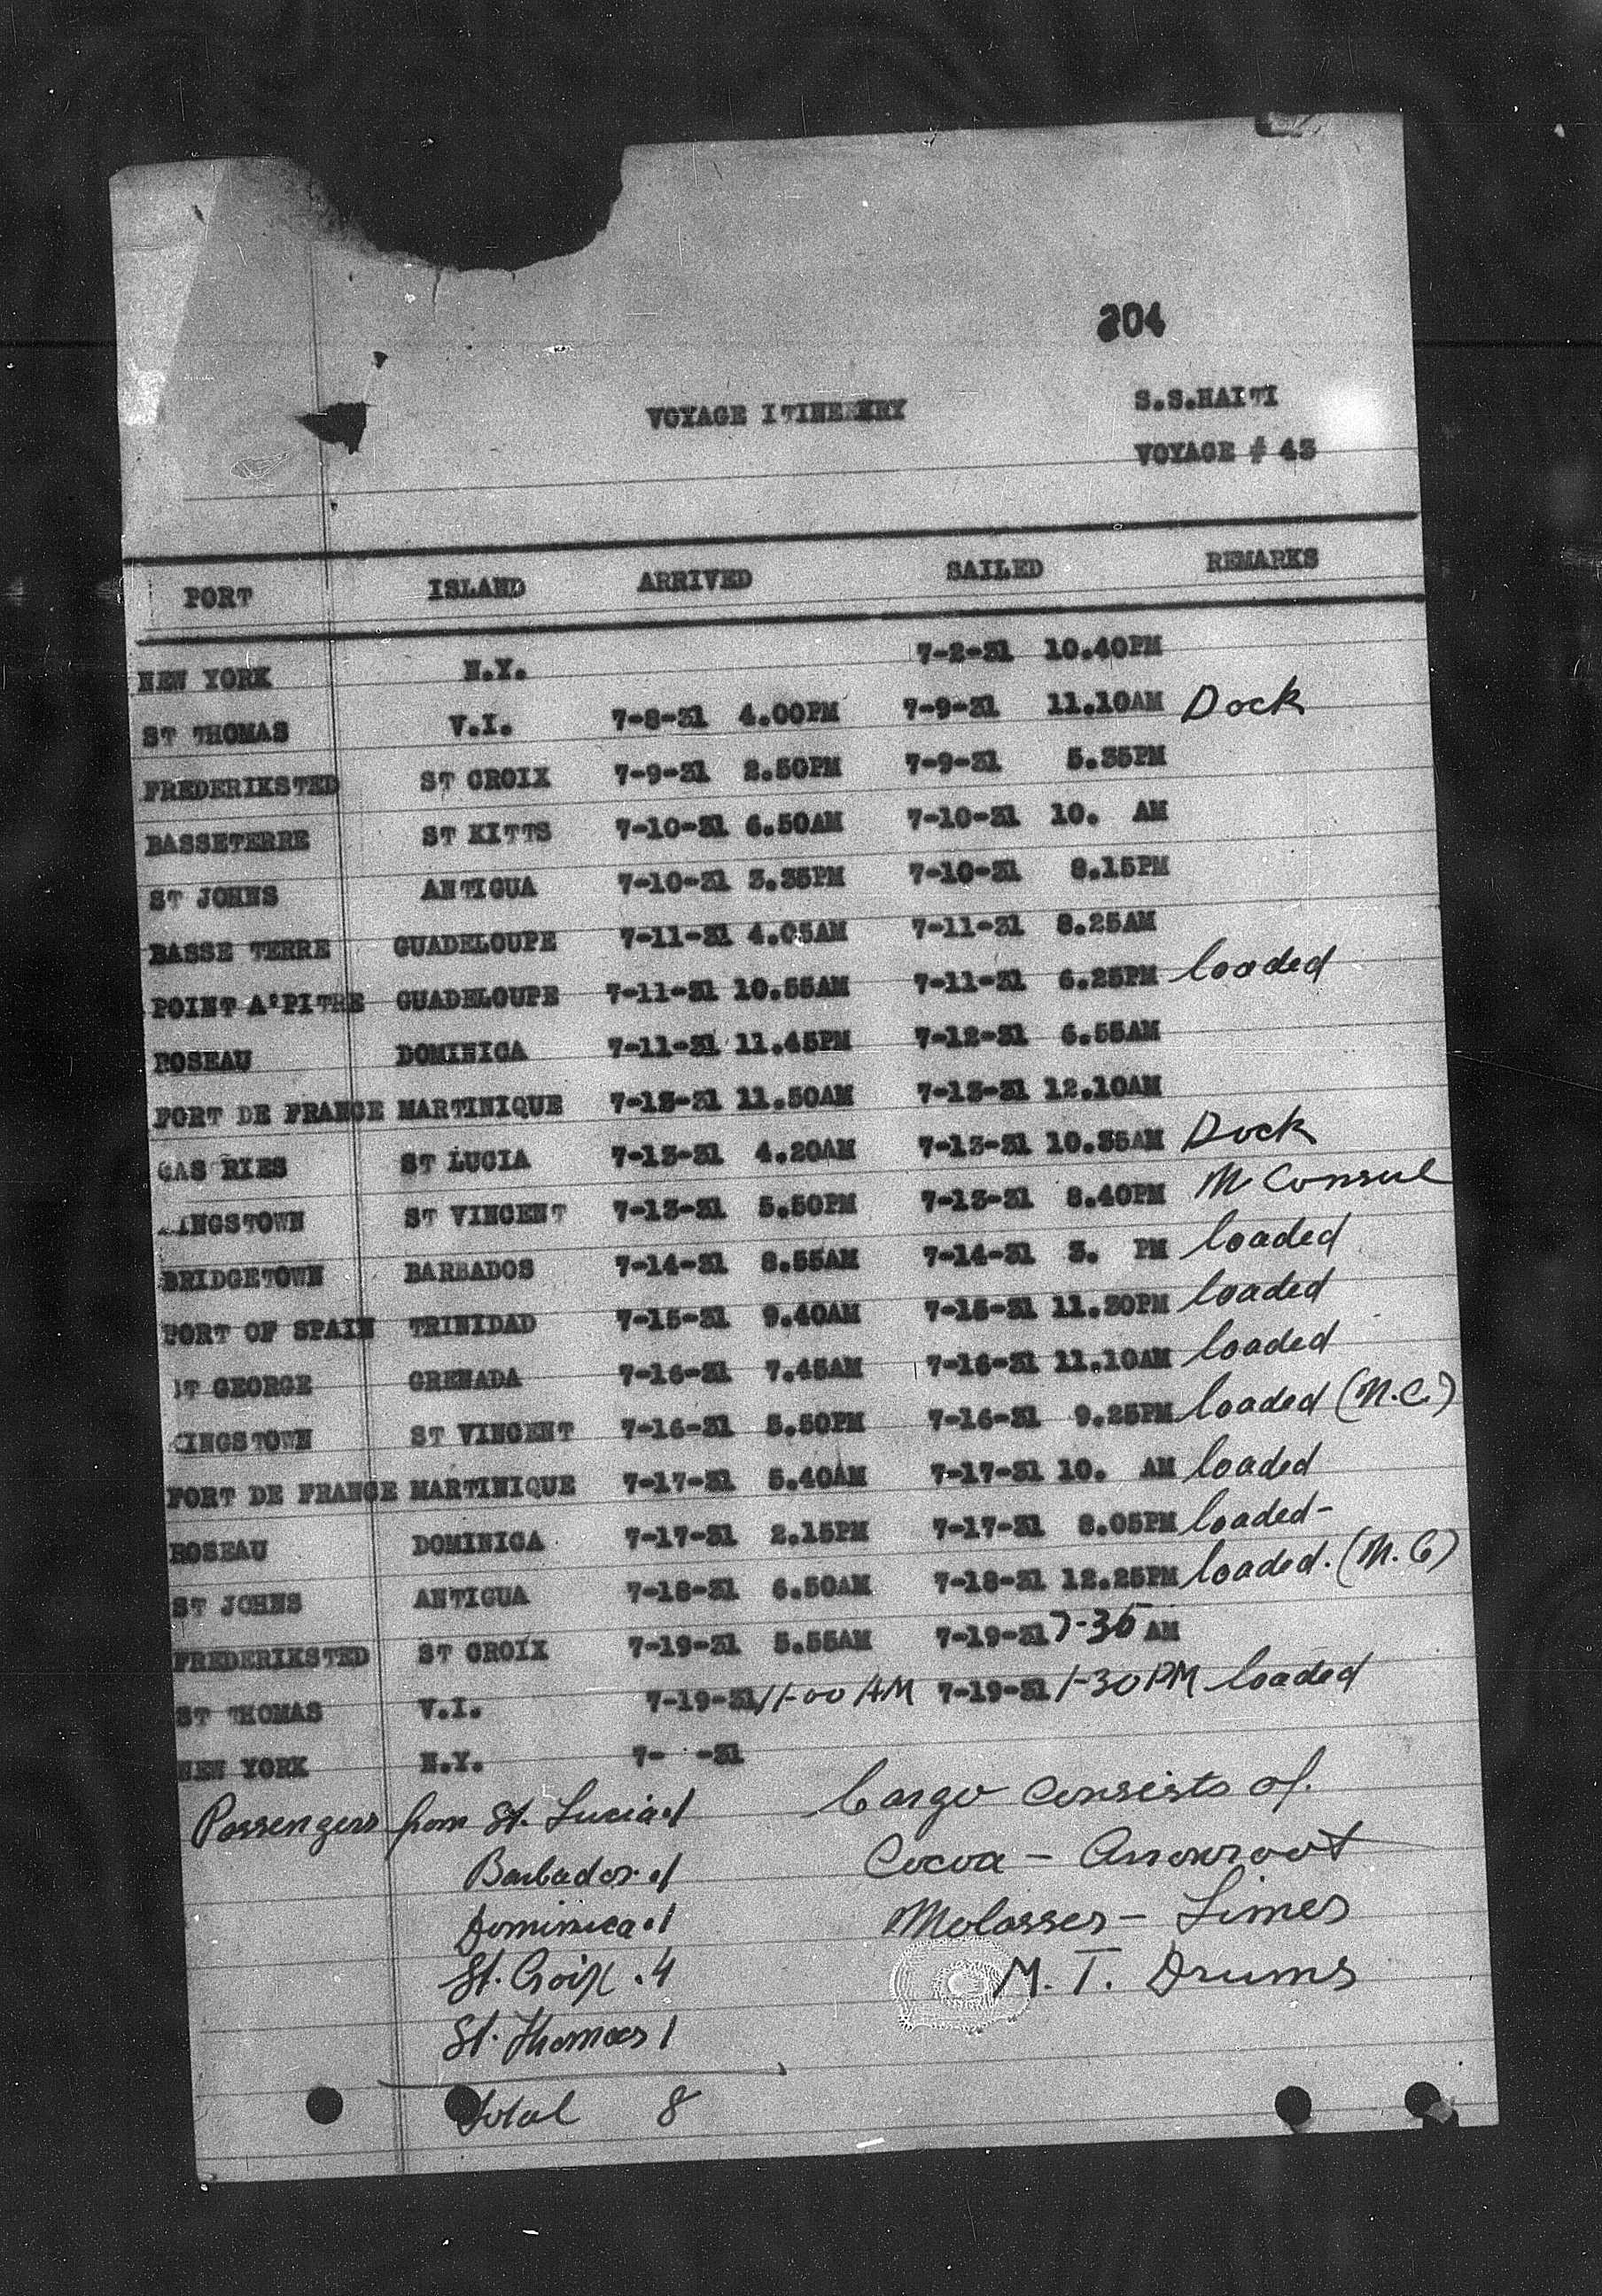 204
VOYAGE ITINERERY S.S.HAITI
VOYAGE # 43
PORT ISLAND ARRIVED SAILED REMARKS
NEW YORK N.Y. 7-2-31 10.40PM
ST THOMAS V.I. 7-8-31 4.00PM 7-9-31 11.10AM Dock
FREDERIKSTED ST CROIX 7-9-31 2.50PM 7-9-31 5.35PM
BASSETERRE ST KITTS 7-10-31 6.50AM 7-10-31 10. AM
ST JOHNS ANTIGUA 7-10-31 3.35PM 7-10-31 8.15PM
BASSE TERRE GUADELOUPE 7-11-31 4.05AM 7-11-31 8.25AM
POINT A'PITRE GUADELOUPE 7-11-31 10.55AM 7-11-31 6.25PM loaded
ROSEAU DOMINICA 7-11-31 11.45PM 7-12-31 6.55AM
FORT DE FRANCE MARTINIQUE 11.50AM 7-13-31 12.10AM
CAS RIES ST LUCIA 7-13-31 4.20AM 7-13-31 10.35AM Dock
KINGSTOWN ST VINCENT 7-13-31 5.50PM 7-13-31 8.40PM M Consul
BRIDGETOWN BARBADOS 7-14-31 8.55AM 7-14-31 3. PM loaded
PORT OF SPAIN TRINIDAD 7-15-31 9.40AM 7-15-31 11.30PM loaded
ST GEORGE GRENADA 7-16-31 7.45AM 7-16-31 11.10AM loaded
KINGSTOWN ST VINCENT 7-16-31 5.50PM 7-16-31 9.25PM loaded (M.C.)
FORT DE FRANCE MARTINIQUE 7-17-31 5.40AM 7-17-31 10. AM loaded
ROSEAU DOMINICA 7-17-31 2.15PM 7-17-31 8.05PM loaded-
ST JOHNS ANTIGUA 7-18-31 6.50AM 7-18-31 12.25PM loaded. (M.C)
FREDERIKSTED ST CROIX 7-19-31 5.55AM 7-19-31 7-35 AM
ST THOMAS V.I. 7-19-31 11-00 AM 7-19-31 1-30PM loaded
NEW YORK N.Y. 7- -31
Passengers from St. Lucia.1 Cargo consists of.
Barbados.1 Cocoa - Arrowroot
Dominica.1 Molasses - Limes
St. Croix .4 M. T. Drums
St. Thomas 1
Total 8